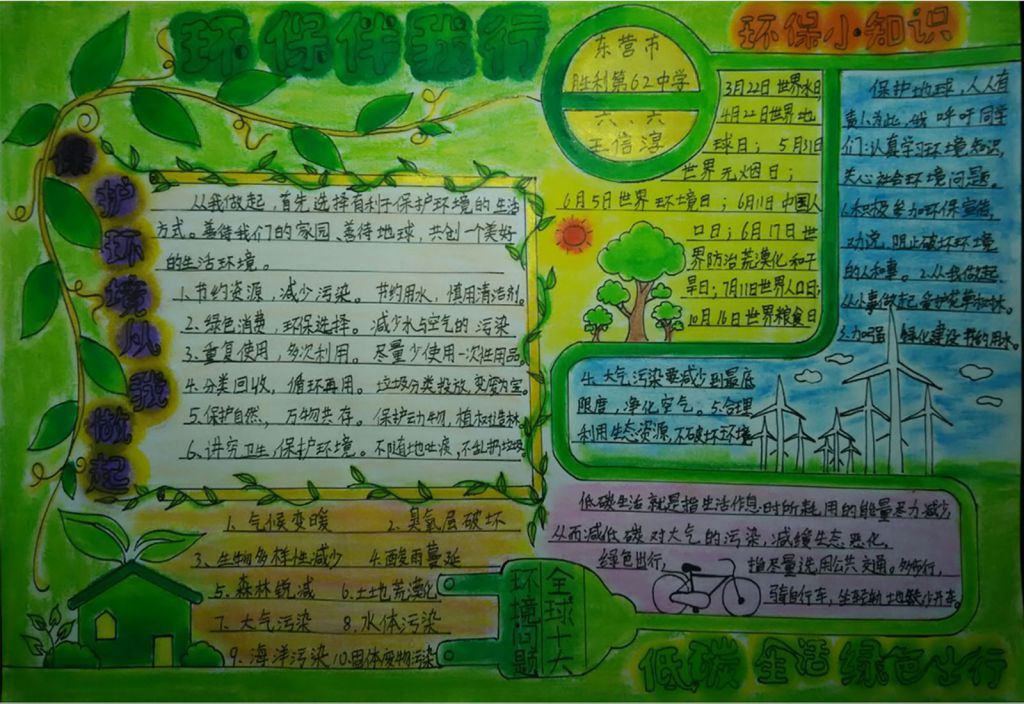 环保伴我行
保护环境从我做起
从我做起，首先选择有利于保护环境的生活
方式。善待我们的家园，善待地球，共创一个美好
的生活环境。
1、节约资源，减少污染。节约用水，慎用清洁剂。
2、绿色消费，环保选择。减少水与空气的污染
3、重复使用，多次利用。尽量少使用一次性用品。
4、分类回收，循环再用。垃圾分类投放，变废为宝。
5、保护自然，万物共存。保护动物，植树造林。
6、讲究卫生，保护环境。不随地吐痰，不乱扔垃圾。
1、气候变暖 2、臭氧层破坏
3、生物多样性减少 4、酸雨蔓延
5、森林锐减 6、土地荒漠化
7、大气污染 8、水体污染
9、海洋污染 10、固体废物污染
全球十大
环境问题
东营市
胜利第62中学
六、六
王信淳
环保小知识
3月22日世界水日
4月22日世界地
球日；5月31日
世界无烟日；
6月5日世界环境日；6月11日中国人
口日；6月17日世
界防治荒漠化和干
旱日；7月11日世界人口日；
10月16日世界粮食日
保护地球，人人有
责！为此，我呼吁同学
们：认真学习环境知识，
关心社会环境问题。
1.积极参加环保宣传，
劝说，阻止破坏环境
的人和事。2.从我做起，
从小事做起，爱护花草和林木。
3.加强绿化建设，节约用水。
4、大气污染要减少到最低
限度，净化空气。5.合理
利用生态资源，不破坏环境
低碳生活就是指生活作息时所耗用的能量尽力减少，
从而减低碳对大气的污染，减缓生态恶化，
绿色出行，指尽量选用公共交通。多步行，
骑自行车，坐轻轨地铁，少开车。
低碳生活 绿色出行